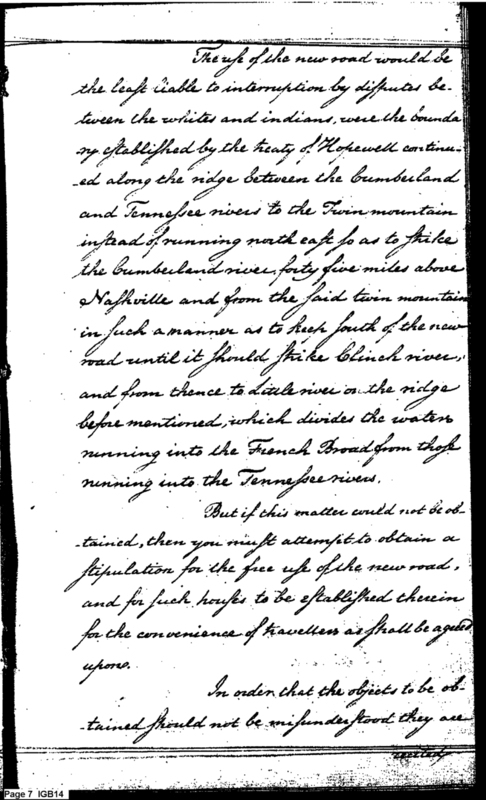 The use of the new road would be
the least liable to interruption by disputes be-
tween the whites and indians, were the bounda
ry established by the treaty of Hopewell continu-
-ed along the ridge between the Cumberland
and Tennessee rivers to the Twin mountain
instead of running north east so as to strike
the Cumberland river, forty five miles above
Nashville and from the said twin mountain
in such a manner as to keep south of the new
road until it should strike Clinch river,
and from thence to Little river or the ridge
before mentioned, which divides the waters
running into the French Broad from those
running into the Tennessee rivers.
But if this matter could not be ob-
-tained, then you must attempt to obtain a
stipulation for the free use of the new road,
and for such houses to be established therein
for the convenience of travellers as shall be agreed
upon.
In order that the objects to be ob-
-tained should not be misunderstood they are
recited
Page 7 IGB14